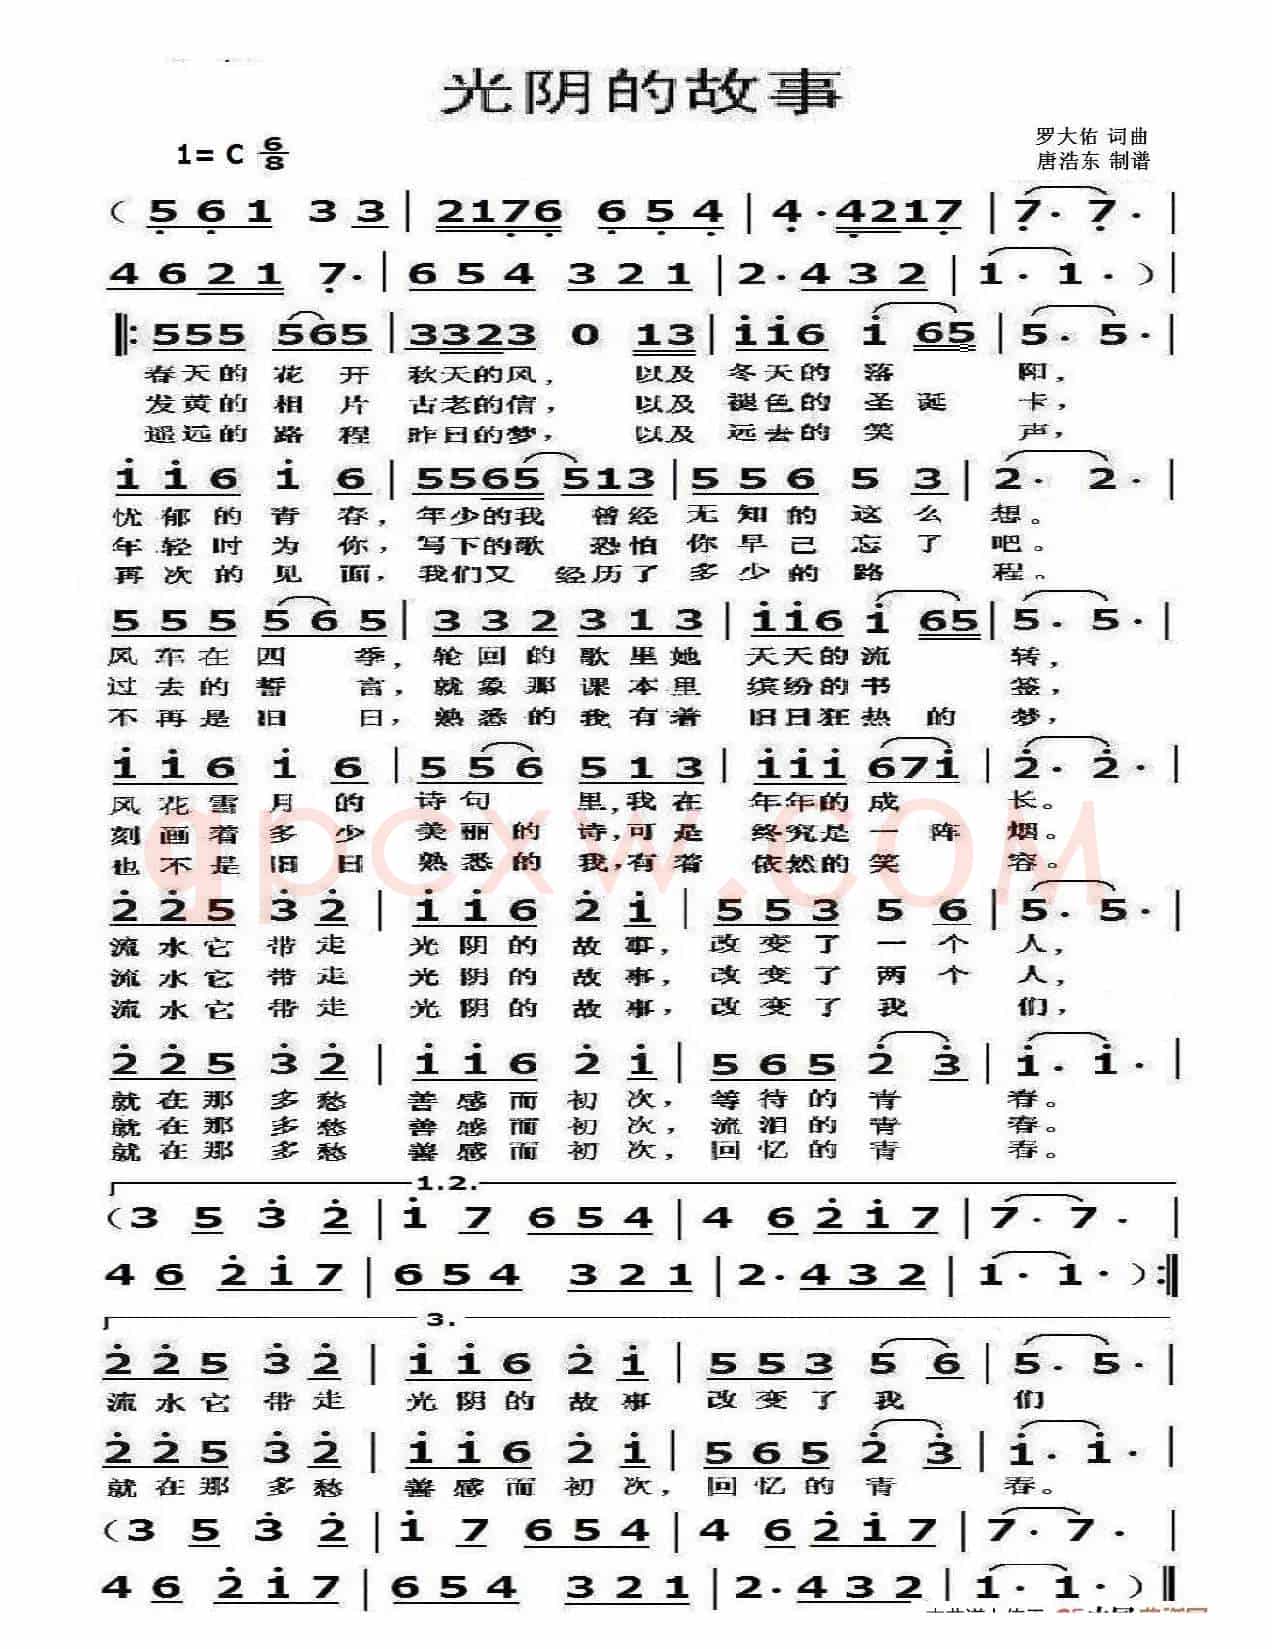 光阴的故事
1= C 6/8
罗大佑 词曲
唐浩东 制谱
( 5 6 1 3 3 | 2176 6 5 4 | 4 · 4217 | 7 · 7 · |
4 6 2 1 7 · | 6 5 4 3 2 1 | 2 · 4 3 2 | 1 · 1 · ) |
‖: 555 565 | 3323 0 13 | i i 6 i 65 | 5 · 5 · |
春天的 花 开 秋天的风, 以及 冬天的 落 阳,
发黄的 相 片 古老的信, 以及 褪色的 圣 诞 卡,
遥远的 路 程 昨日的梦, 以及 远去的 笑 声,
i i 6 i 6 | 5565 513 | 5 5 6 5 3 | 2 · 2 · |
忧郁的青春, 年少的我 曾经 无知的这么想。
年轻时为你, 写下的歌 恐怕 你早已忘了吧。
再次的见面, 我们又 经历了 多少的路 程。
5 5 5 5 6 5 | 3 3 2 3 1 3 | i i 6 i 65 | 5 · 5 · |
风车在四 季, 轮回的歌里她 天天的流 转,
过去的誓 言, 就象那课本里 缤纷的书 签,
不再是旧 日, 熟悉的我有着 旧日狂热的梦,
i i 6 i 6 | 5 5 6 5 1 3 | i i i 6 7 i | 2 · 2 · |
风花雪月的 诗句 里,我在 年年的成 长。
刻画着多少 美丽的诗,可是 终究是一阵烟。
也不是旧日 熟悉的我,有着 依然的笑 容。
gpcxw.com
2 2 5 3 2 | i i 6 2 i | 5 5 3 5 6 | 5 · 5 · |
流水它带走 光阴的故事, 改变了一个人,
流水它带走 光阴的故事, 改变了两个人,
流水它带走 光阴的故事, 改变了我 们,
2 2 5 3 2 | i i 6 2 i | 5 6 5 2 3 | i · i · |
就在那多愁 善感而初次, 等待的青 春。
就在那多愁 善感而初次, 流泪的青 春。
就在那多愁 善感而初次, 回忆的青 春。
1.2.
( 3 5 3 2 | i 7 6 5 4 | 4 6 2 i 7 | 7 · 7 · |
4 6 2 i 7 | 6 5 4 3 2 1 | 2 · 4 3 2 | 1 · 1 · ) :‖
3.
2 2 5 3 2 | i i 6 2 i | 5 5 3 5 6 | 5 · 5 · |
流水它带走 光阴的故事 改变了我 们
2 2 5 3 2 | i i 6 2 i | 5 6 5 2 3 | i · i · |
就在那多愁 善感而初次, 回忆的青 春。
( 3 5 3 2 | i 7 6 5 4 | 4 6 2 i 7 | 7 · 7 · |
4 6 2 i 7 | 6 5 4 3 2 1 | 2 · 4 3 2 | 1 · 1 · ) ‖